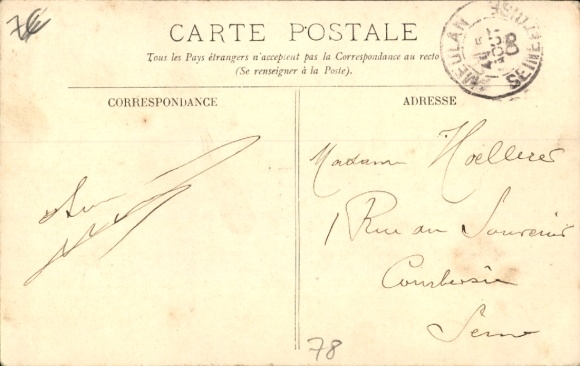 7€
CARTE POSTALE
Tous les Pays étrangers n'acceptent pas la Correspondance au recto
(Se renseigner à la Poste).
MEULAN
SEINE-ET-OISE
CORRESPONDANCE
ADRESSE
Madame Hoellerer
1 Rue du Souvenir
Courbevoie
Seine
78